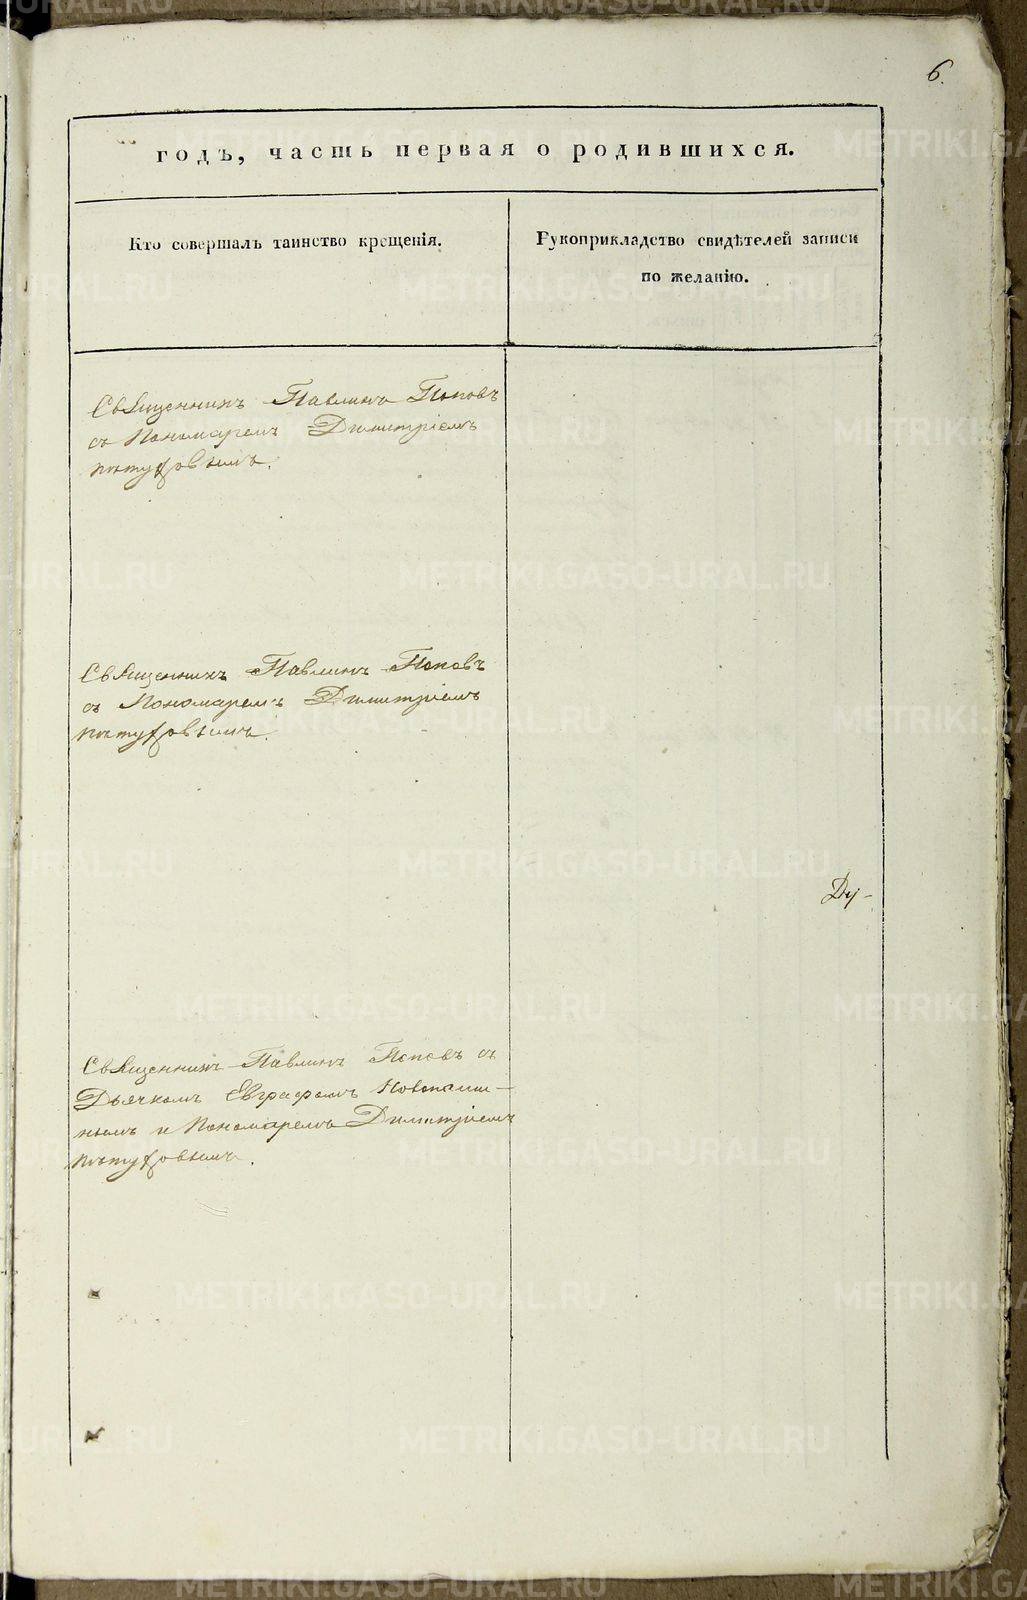 6.
годъ, часть первая о родившихся.
Кто совершалъ таинство крещенія.
Рукоприкладство свидѣтелей записи
по желанію.
Священникъ Павлинъ Поповъ
съ Пономаремъ Димитріемъ
Пѣтуховымъ.
Священникъ Павлинъ Поповъ
съ Пономаремъ Димитріемъ
Пѣтуховымъ.
Ду-
Священникъ Павлинъ Поповъ съ
Дьячкомъ Евграфомъ Новопаши-
нымъ и Пономаремъ Димитріемъ
Пѣтуховымъ.
METRIKI.GASO-URAL.RU